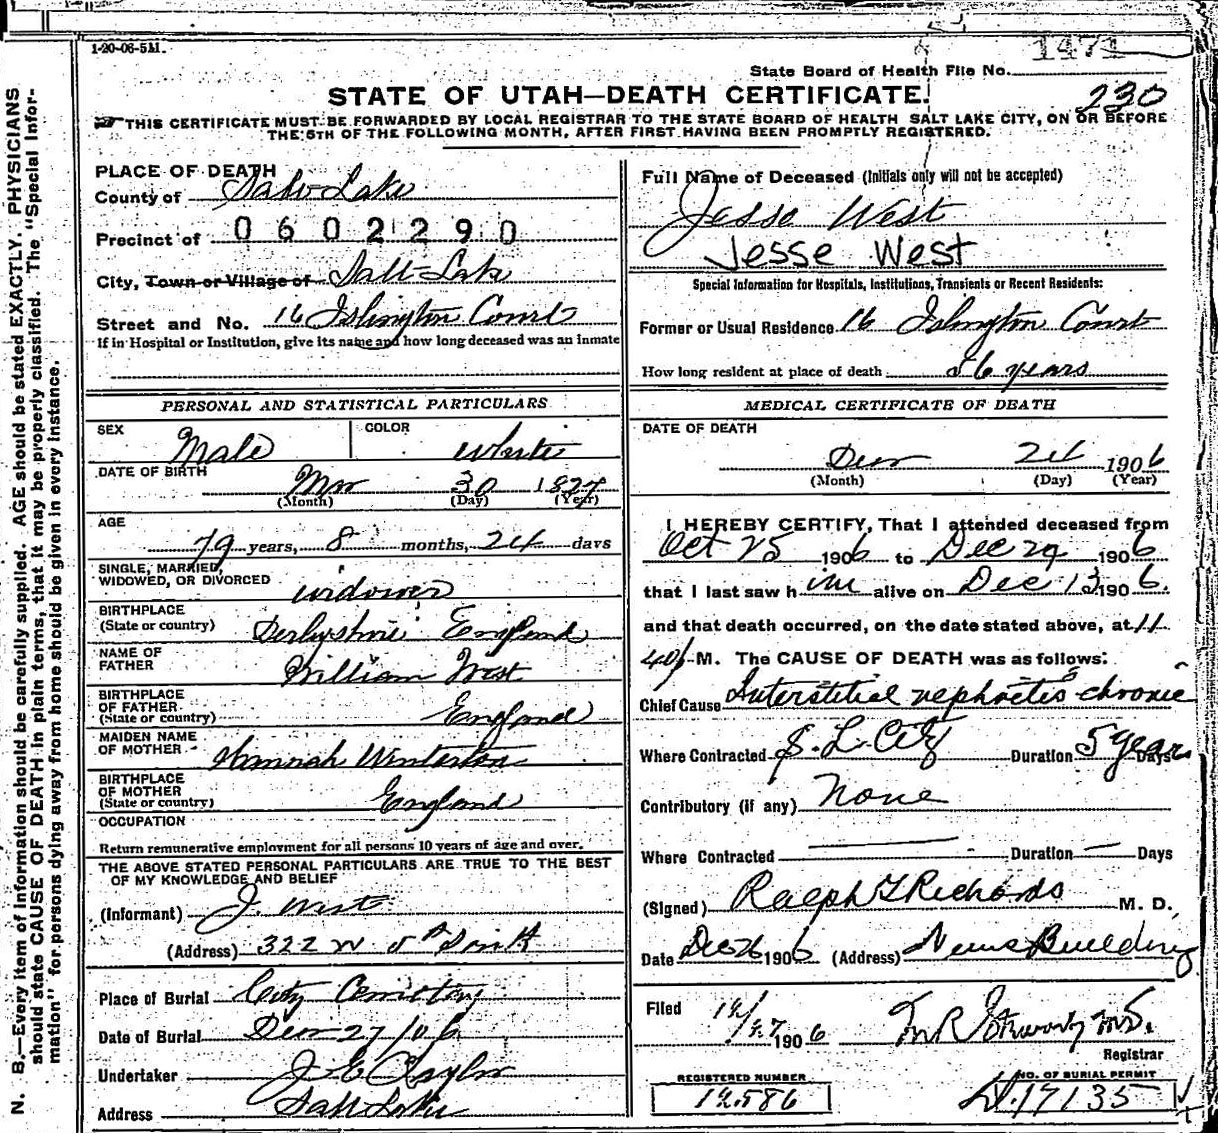 1-20-06-5M.
1471
State Board of Health File No.
230
STATE OF UTAH—DEATH CERTIFICATE.
THIS CERTIFICATE MUST BE FORWARDED BY LOCAL REGISTRAR TO THE STATE BOARD OF HEALTH SALT LAKE CITY, ON OR BEFORE
THE 5TH OF THE FOLLOWING MONTH, AFTER FIRST HAVING BEEN PROMPTLY REGISTERED.
N. B.—Every item of information should be carefully supplied. AGE should be stated EXACTLY. PHYSICIANS
should state CAUSE OF DEATH in plain terms, that it may be properly classified. The "Special Infor-
mation" for persons dying away from home should be given in every instance.
PLACE OF DEATH
County of Salt Lake
Precinct of 0602290
City, Town or Village of Salt Lake
Street and No. 16 Islington Court
If in Hospital or Institution, give its name and how long deceased was an inmate
PERSONAL AND STATISTICAL PARTICULARS
SEX Male COLOR White
DATE OF BIRTH Mar 30 1827
(Month) (Day) (Year)
AGE
79 years, 8 months, 24 days
SINGLE, MARRIED,
WIDOWED, OR DIVORCED widower
BIRTHPLACE
(State or country) Derbyshire England
NAME OF
FATHER William West
BIRTHPLACE
OF FATHER
(State or country) England
MAIDEN NAME
OF MOTHER Hannah Winterton
BIRTHPLACE
OF MOTHER
(State or country) England
OCCUPATION
Return remunerative employment for all persons 10 years of age and over.
THE ABOVE STATED PERSONAL PARTICULARS ARE TRUE TO THE BEST
OF MY KNOWLEDGE AND BELIEF
(Informant) J. West
(Address) 322 W 5th South
Place of Burial City Cemetery
Date of Burial Dec 27/06
Undertaker J E Taylor
Address Salt Lake
Full Name of Deceased (Initials only will not be accepted)
Jesse West
Jesse West
Special Information for Hospitals, Institutions, Transients or Recent Residents:
Former or Usual Residence 16 Islington Court
How long resident at place of death years
MEDICAL CERTIFICATE OF DEATH
DATE OF DEATH
Dec 24 1906
(Month) (Day) (Year)
I HEREBY CERTIFY, That I attended deceased from
Oct 25 1906 to Dec 24 1906
that I last saw him alive on Dec 13 1906.
and that death occurred, on the date stated above, at 11
40 M. The CAUSE OF DEATH was as follows:
Chief Cause Interstitial nephritis chronic
Where Contracted S. L. City Duration 5 years Days
Contributory (if any) None
Where Contracted — Duration — Days
(Signed) Ralph T Richards M. D.
Date Dec 26 1906 (Address) News Building
Filed 12/27 1906
Registrar
REGISTERED NUMBER NO. OF BURIAL PERMIT
12586 17135